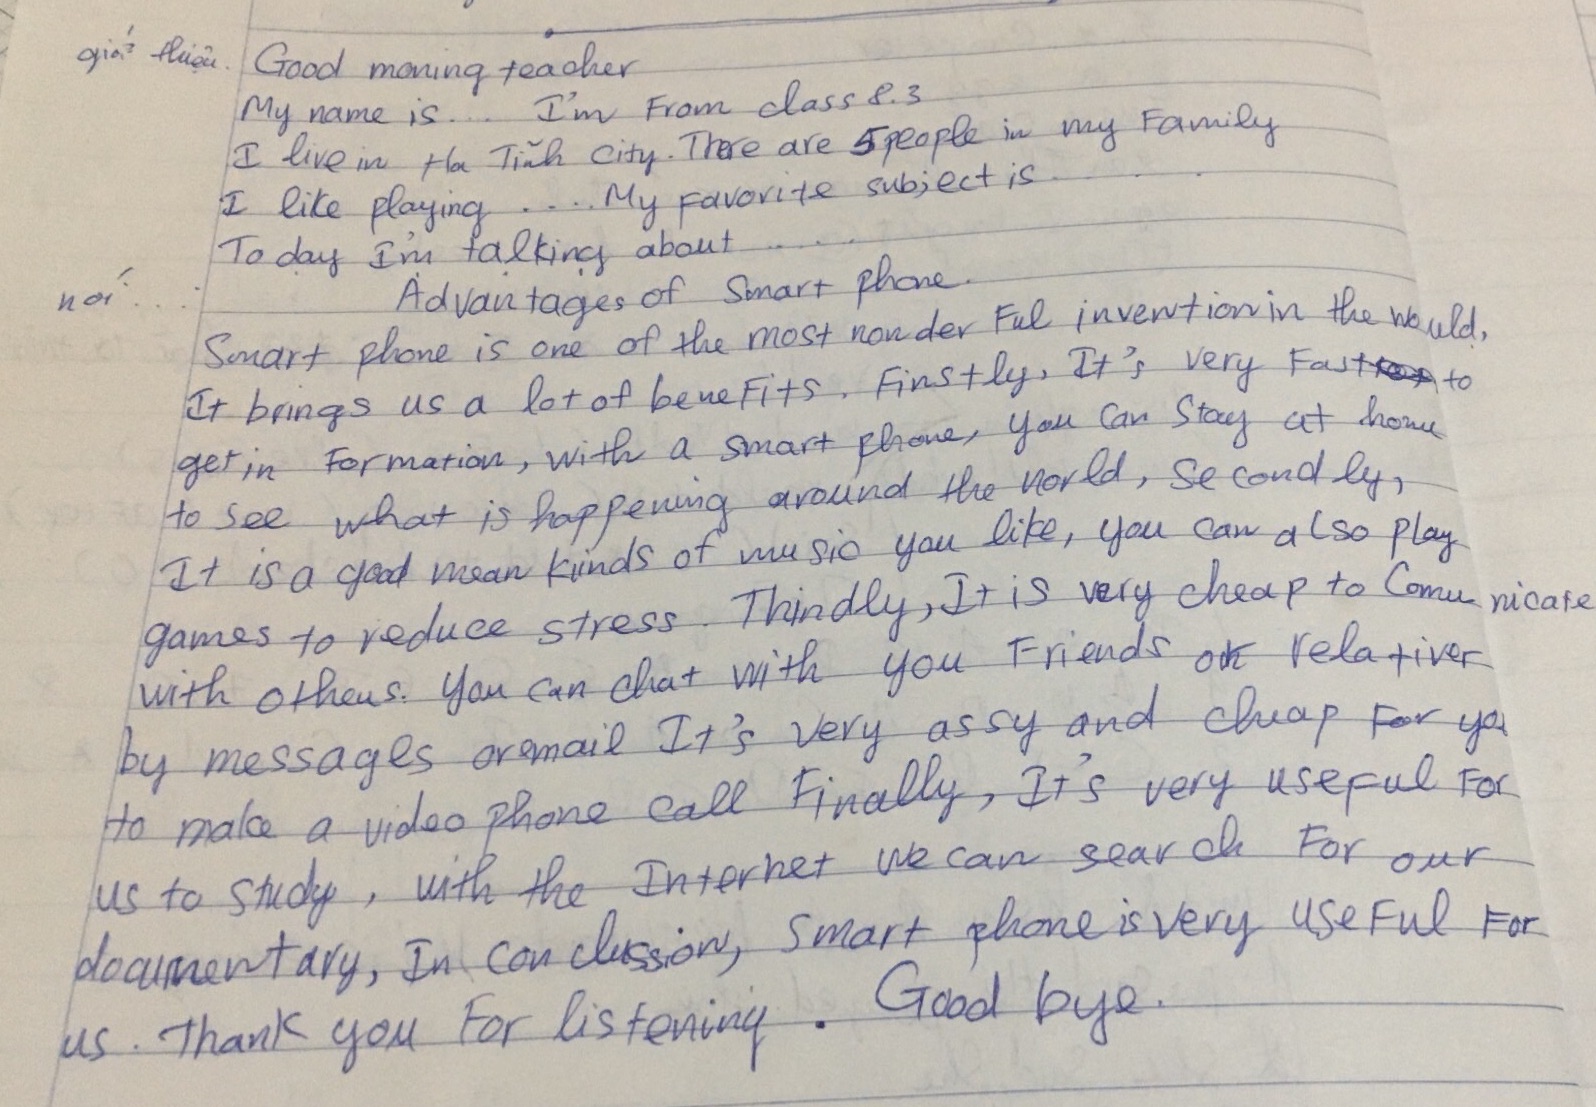 giới thiệu. Good moning teacher
My name is.... I'm From class 8.3
I live in Ha Tĩnh City. There are 5 people in my Family
I like playing ..... My Favorite subject is .......
To day I'm talking about .....
nói ....: Advantages of Smart phone.
Smart phone is one of the most nonder Ful invention in the would,
It brings us a lot of beneFits. Finstly, It's very Fast to
get in Formation, with a smart phone, you Can Stay at home
to see what is happening around the norld, Se cond ly,
It is a good mean kiinds of music you like, you can also play
games to reduce stress. Thindly, It is very cheap to Comu nicate
with otheus. You can chat with you Friends ok relativer
by messages or email It's very assy and cheap For you
to make a video phone call Finally, It's very useful For
us to study, with the Internet we can search For our
documentary, In Con clussion, Smart phone is very use Ful For
us. Thank you For listening. Good bye.